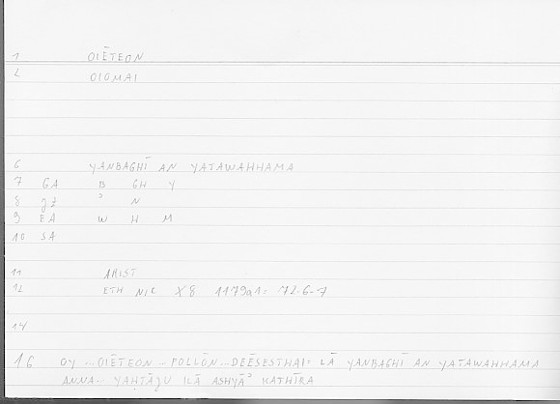 1 OIĒTEON
2 OIOMAI
6 YANBAGHĪ AN YATAWAHHAMA
7 GA B GH Y
8 ʾ N
9 EA W H M
10 SA
11 ARIST
12 ETH NIC X8 1179a1= 72.6-7
14
16 OY -- OIĒTEON -- POLLŌN -- DEĒSESTHAI= LĀ YANBAGHĪ AN YATAWAHHAMA
ANNA-- YAḤTĀJU ILĀ ASHYĀʾ KATHĪRA